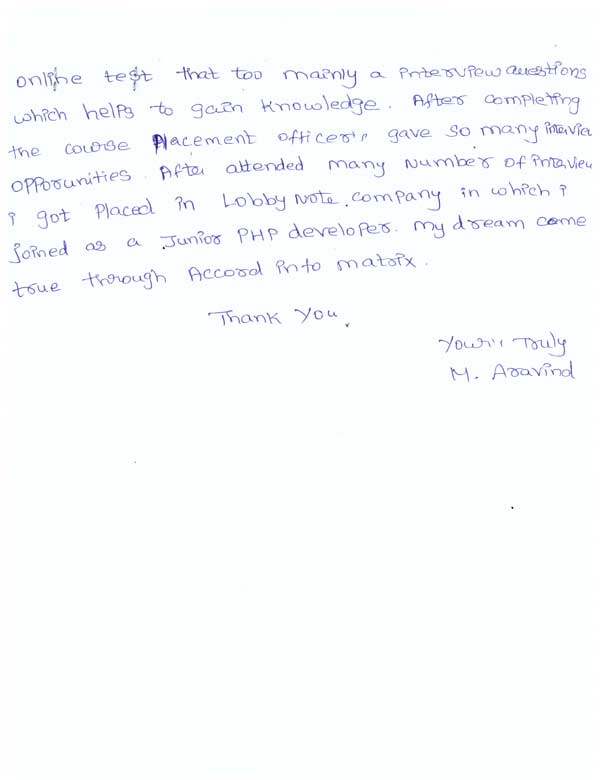 online test that too mainly a interview questions
which helps to gain knowledge. After completing
the course Placement officer's gave so many intervie
opporunities. After attended many number of interview
i got placed in Lobby Note company in which i
joined as a Junior PHP developer. my dream come
true through Accord into matrix.
Thank you.
Your's Truly
M. Aravind